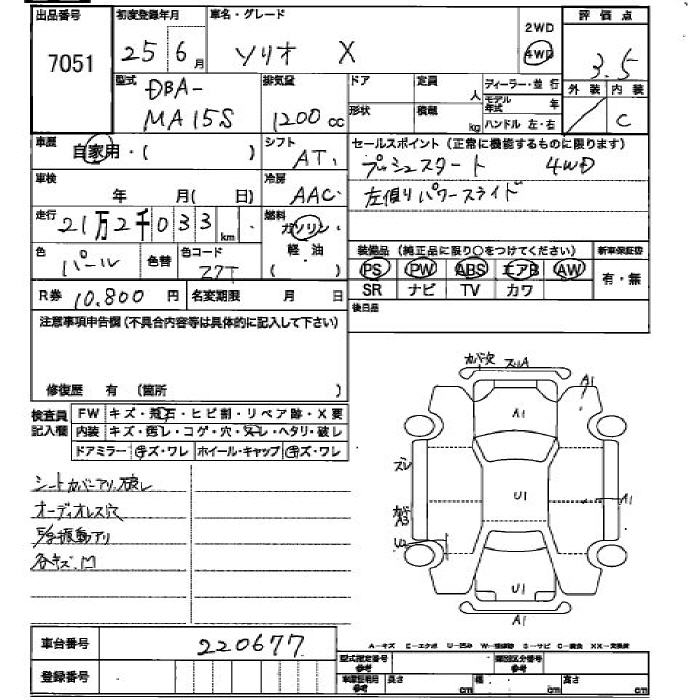 出品番号 初度登録年月 車名・グレード 2WD 評価点
7051 25 6月 ソリオ X 4WD 3.5
外装 内装
C
型式 DBA-
MA15S
排気量 1200cc
ドア 定員 人
形状 積載 kg
ディーラー・並行
モデル年式 年
ハンドル 左・右
車歴 自家用・( )
シフト AT
セールスポイント(正常に機能するものに限ります)
プッシュスタート 4WD
左側リパワースライド
車検 年 月(日)
冷房 AAC
走行 21万2千033km
燃料 ガソリン・軽・油( )
色 パール 色替 色コード Z7T
装備品(純正品に限り○をつけてください) 新車保証書
PS PW ABS エアB AW 有・無
SR ナビ TV カワ
R券 10.800円 名変期限 月 日
後日品
注意事項申告欄(不具合内容等は具体的に記入して下さい)
修復歴 有(箇所 )
検査員記入欄 FW キズ・飛石・ヒビ割・リペア跡・X要
内装 キズ・汚レ・コゲ・穴・スレ・ヘタリ・破レ
ドアミラー キズ・ワレ ホイール・キャップ キズ・ワレ
シートカバーアリ、破レ
オーディオレス穴
振動アリ
各キズ.凹
ズリA
A1
A1
ズレ
U1
A1
U1
A1
車台番号 220677
登録番号
A-キズ E-エクボ U-凹み W-補修跡 S-サビ C-腐食 XX-交換済
型式指定番号 参考 類別区分番号 参考
車庫証明用 参考 長さ cm 幅 cm 高さ cm